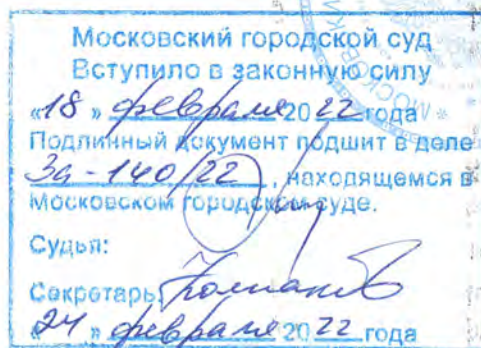 Московский городской суд
Вступило в законную силу
«18» февраля 2022 года
Подлинный документ подшит в деле
3а-140/22, находящемся в
Московском городском суде.
Судья:
Секретарь
«24» февраля 2022 года